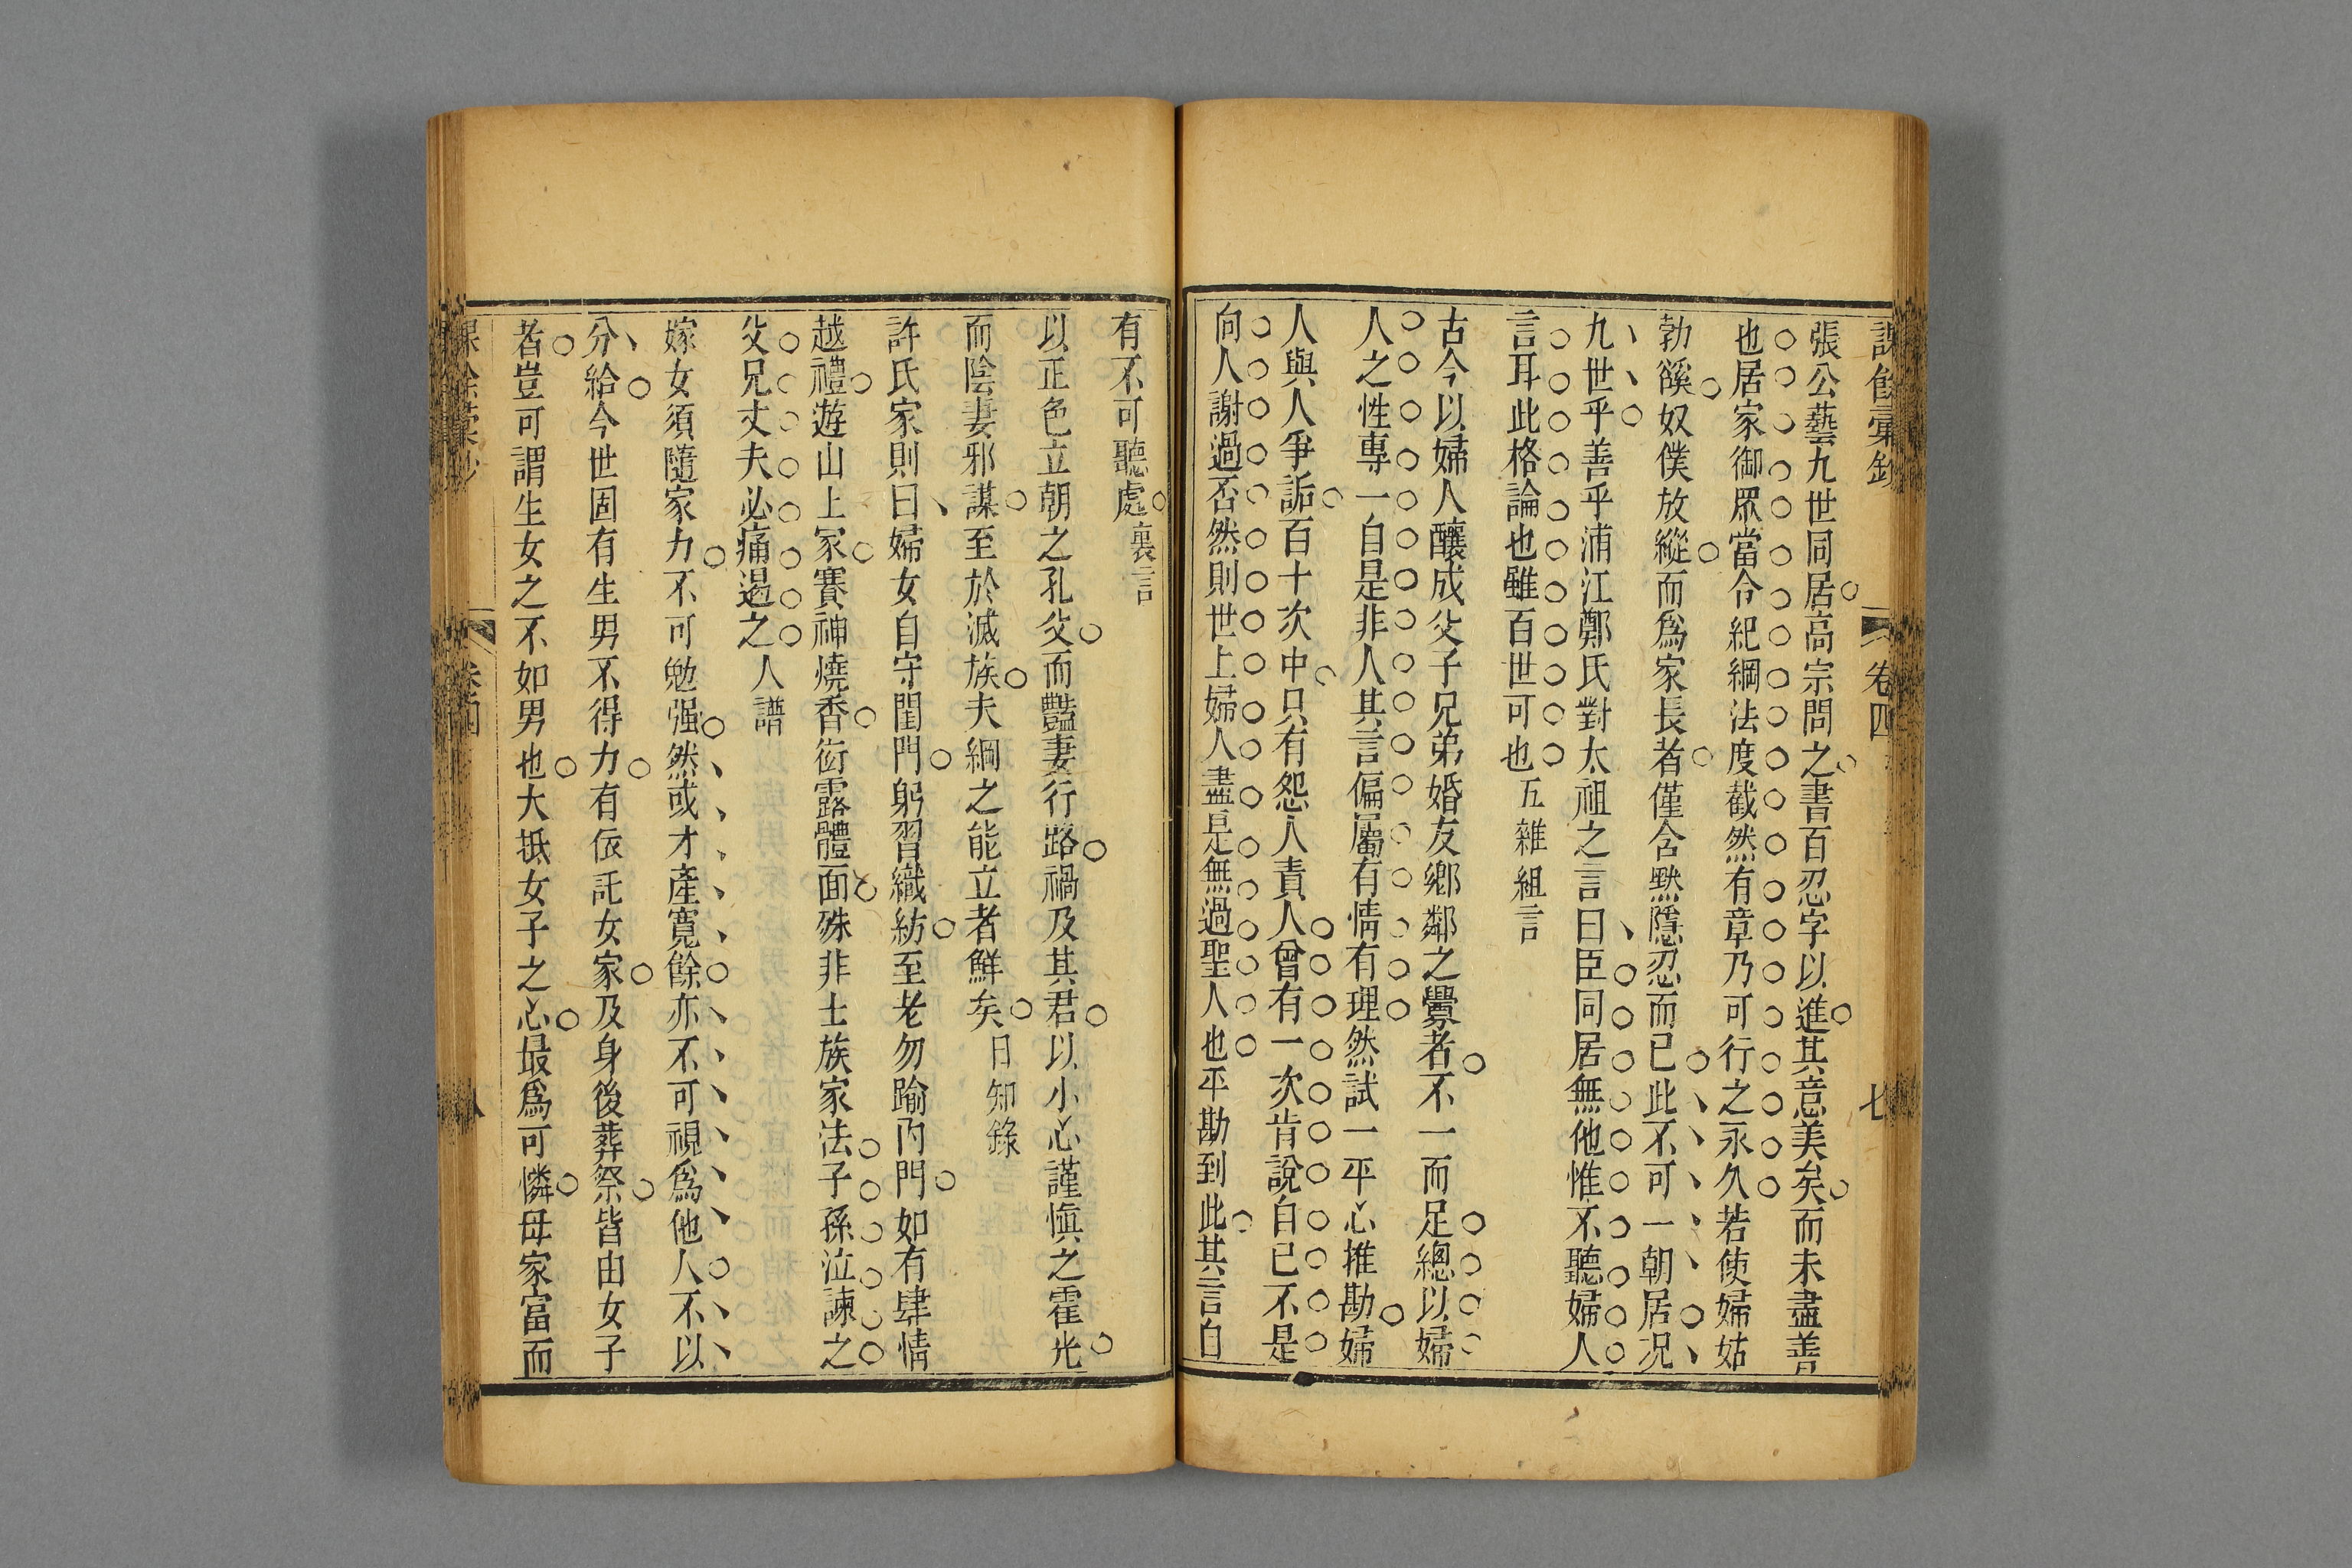 課餘彙鈔 卷四 七
張公藝九世同居高宗問之書百忍字以進其意美矣而未盡善
也居家御眾當令紀綱法度截然有章乃可行之永久若使婦姑
勃谿奴僕放縱而爲家長者僅含默隱忍而已此不可一朝居况
九世乎善乎浦江鄭氏對太祖之言曰臣同居無他惟不聽婦人
言耳此格論也雖百世可也五雜組言
古今以婦人釀成父子兄弟婚友鄉鄰之釁者不一而足總以婦
人之性專一自是非人其言偏屬有情有理然試一平心推勘婦
人與人爭詬百十次中只有怨人責人曾有一次肯說自已不是
向人謝過否然則世上婦人盡是無過聖人也平勘到此其言自
有不可聽處裏言
以正色立朝之孔父而豔妻行路禍及其君以小心謹愼之霍光
而陰妻邪謀至於滅族夫綱之能立者鮮矣日知錄
許氏家則曰婦女自守閨門躬習織紡至老勿踰內門如有肆情
越禮遊山上冢賽神燒香衒露體面殊非士族家法子孫泣諫之
父兄丈夫必痛遏之人譜
嫁女須隨家力不可勉强然或才產寬餘亦不可視爲他人不以
分給今世固有生男不得力有依託女家及身後葬祭皆由女子
者豈可謂生女之不如男也大抵女子之心最爲可憐母家富而
課餘彙鈔 卷四 八